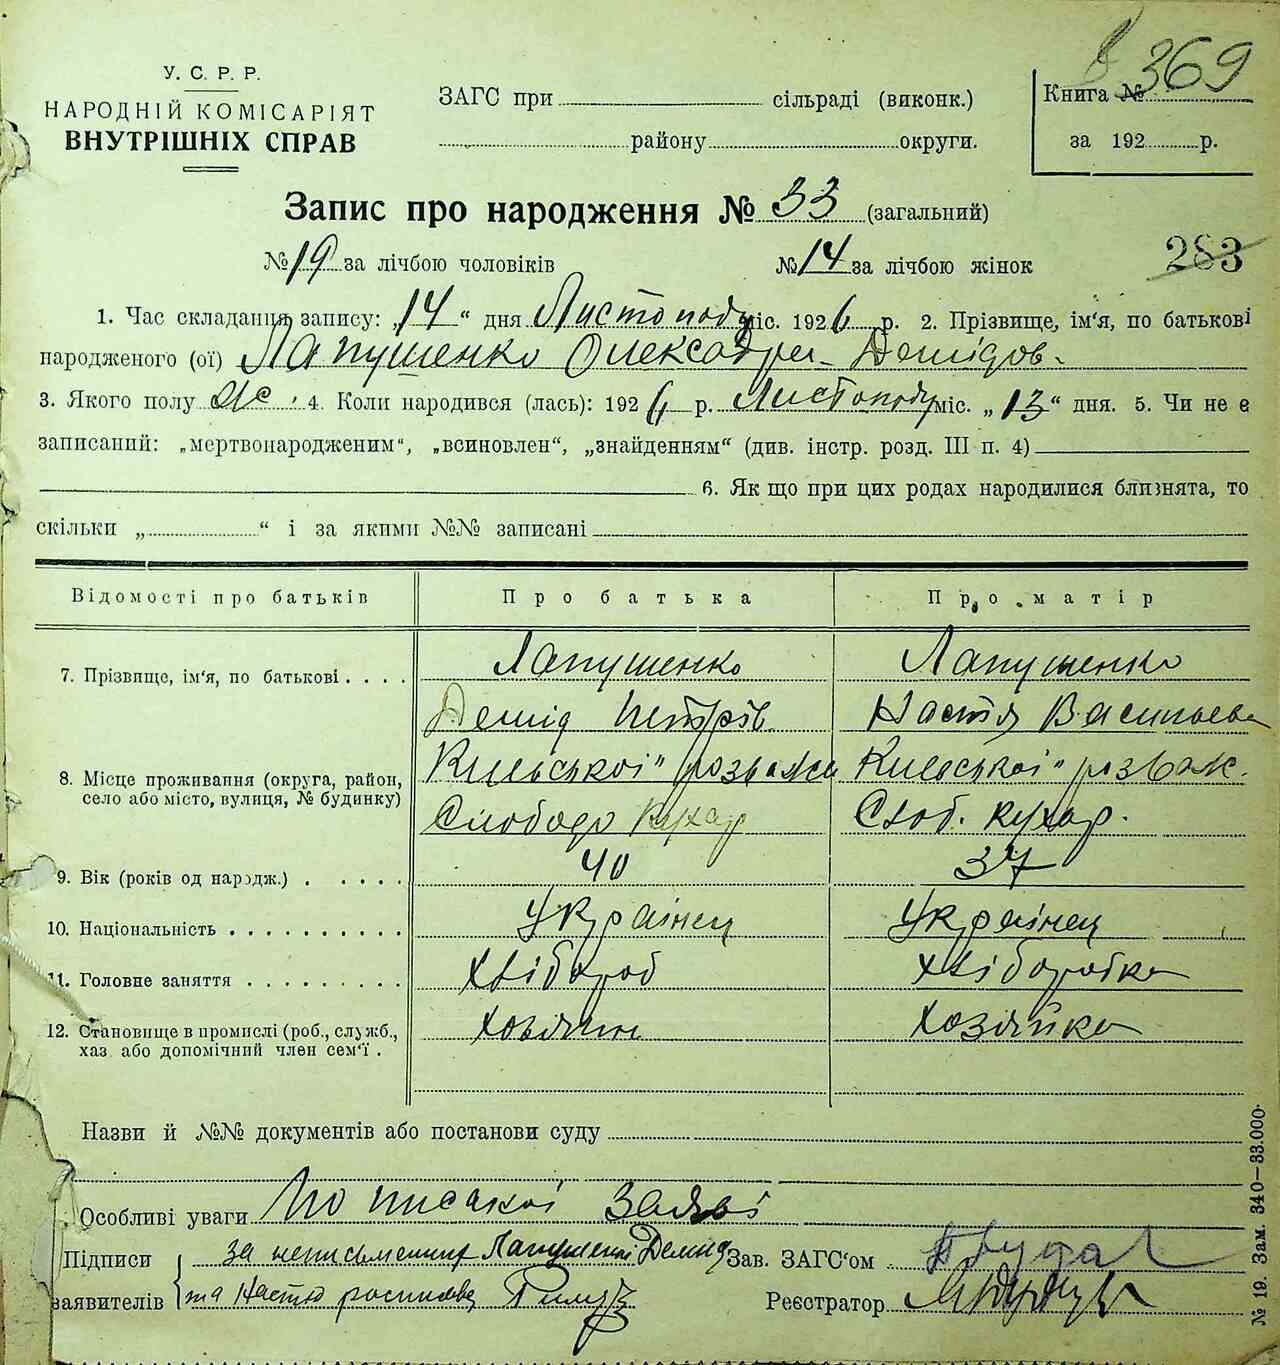 369
У. С. Р. Р.
НАРОДНІЙ КОМІСАРІЯТ
ВНУТРІШНІХ СПРАВ
ЗАГС при сільраді (виконк.)
району округи.
Книга №
за 192 р.
Запис про народження № 33 (загальний)
№ 19 за лічбою чоловіків № 14 за лічбою жінок
283
1. Час складання запису: „14“ дня Листопаду міс. 1926 р. 2. Прізвище, ім'я, по батькові
народженого (ої) Лапушенко Олександра Демідов.
3. Якого полу 4. Коли народився (лась): 1926 р. Листопаду міс. „13“ дня. 5. Чи не є
записаний: „мертвонародженим“, „всиновлен“, „знайденням“ (див. інстр. розд. III п. 4)
6. Як що при цих родах народилися близнята, то
скільки „ “ і за якими №№ записані
Відомості про батьків Про батька Про матір
7. Прізвище, ім'я, по батькові Лапушенко Лапушенко
Демід Петрів Настя Васильева
8. Місце проживання (округа, район, Київської розваж Київської розваж.
село або місто, вулиця, № будинку) Слобода Кухар Слоб. кухар.
9. Вік (років од народж.) 40 37
10. Національність Українец Українец
11. Головне заняття Хлібороб хліборобка
12. Становище в промислі (роб., служб., хозяин хозяйка
хаз або допомічний член сем'ї .
Назви й №№ документів або постанови суду
Особливі уваги По писемої заяві
Підписи за неписьменних Лапушенків Демида Зав. ЗАГС'ом
заявителів та Настю росписавсь Реєстратор
№ 19. Зам. 340—33.000.